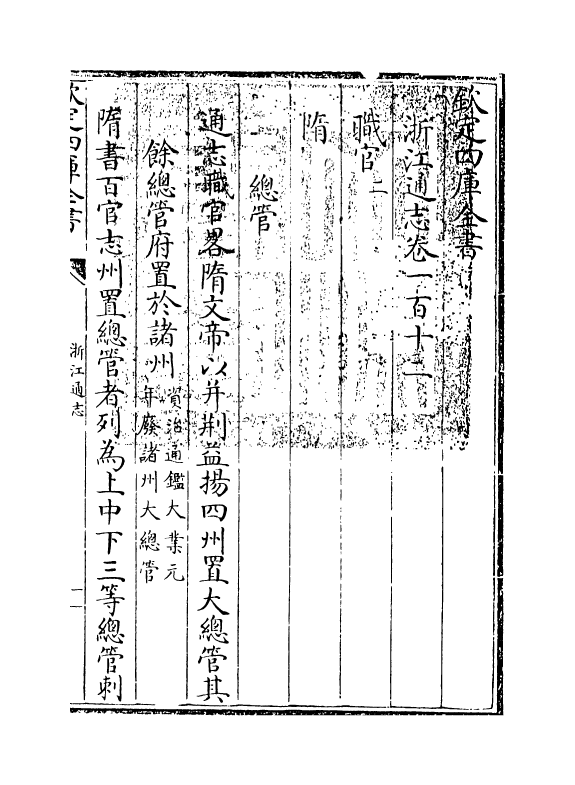 欽定四庫全書
浙江通志卷一百十二
職官二
隋
總管
通志職官畧隋文帝以并荆益揚四州置大總管其
餘總管府置於諸州資治通鑑大業元
年廢諸州大總管
隋書百官志州置總管者列為上中下三等總管刺
欽定四庫全書
浙江通志
一